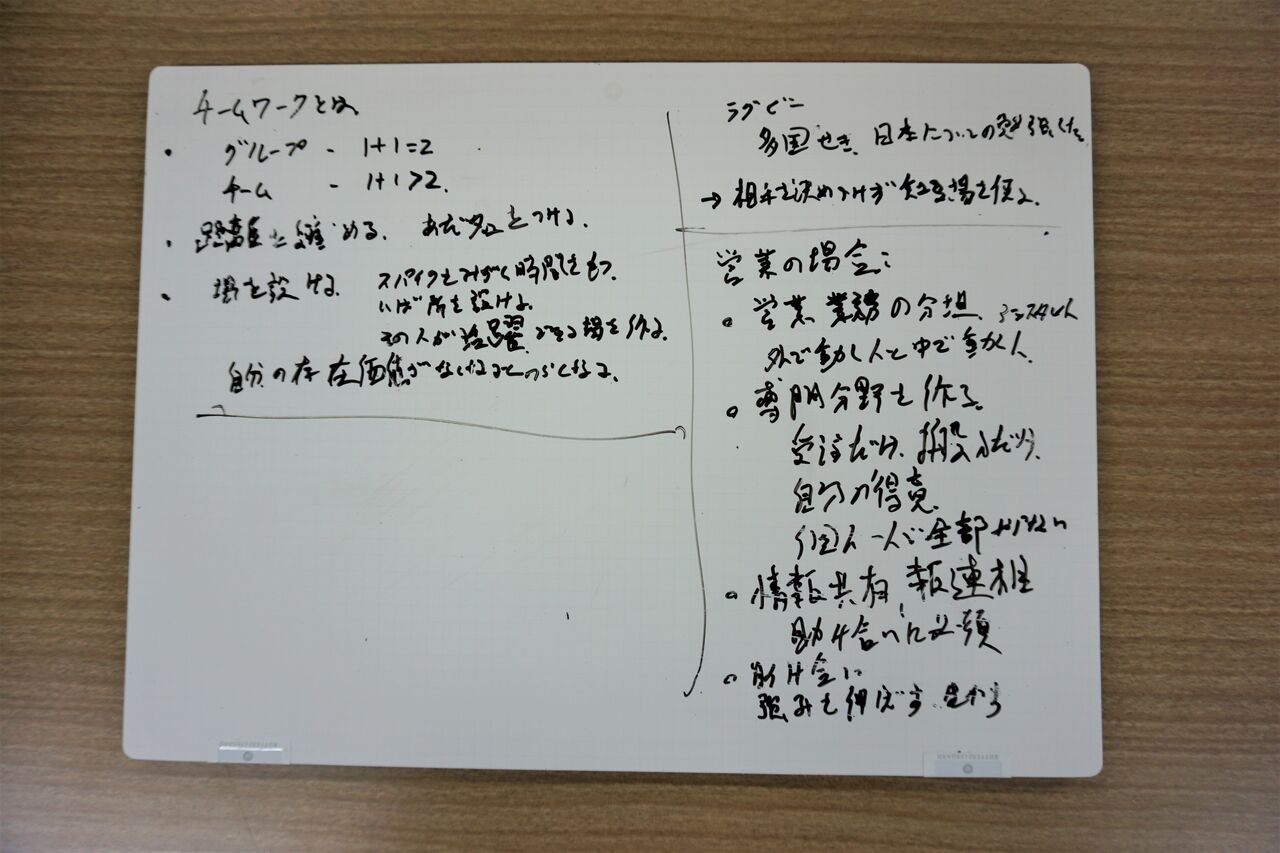 チームワークとは
・ グループ - 1+1=2
チーム - 1+1>2.
・ 距離を縮める. あだ名をつける.
・ 場を設ける. スパイクをみがく時間をもつ.
いば所を設ける.
その人が活躍できる場を作る.
自分の存在価値がなくなるとつらくなる.
ラグビー
多国せき. 日本についての勉強した
→ 相手を決めつけず
営業の場合:
○ 営業 業務の分担.
外で動く人と中で動く人.
○ 専門分野を作る.
受注だけ.
自分の得意.
一人で全部やらない
○ 情報共有, 報連相
助け合いに必須
○ 助け合い
強みを伸ばす 生かす